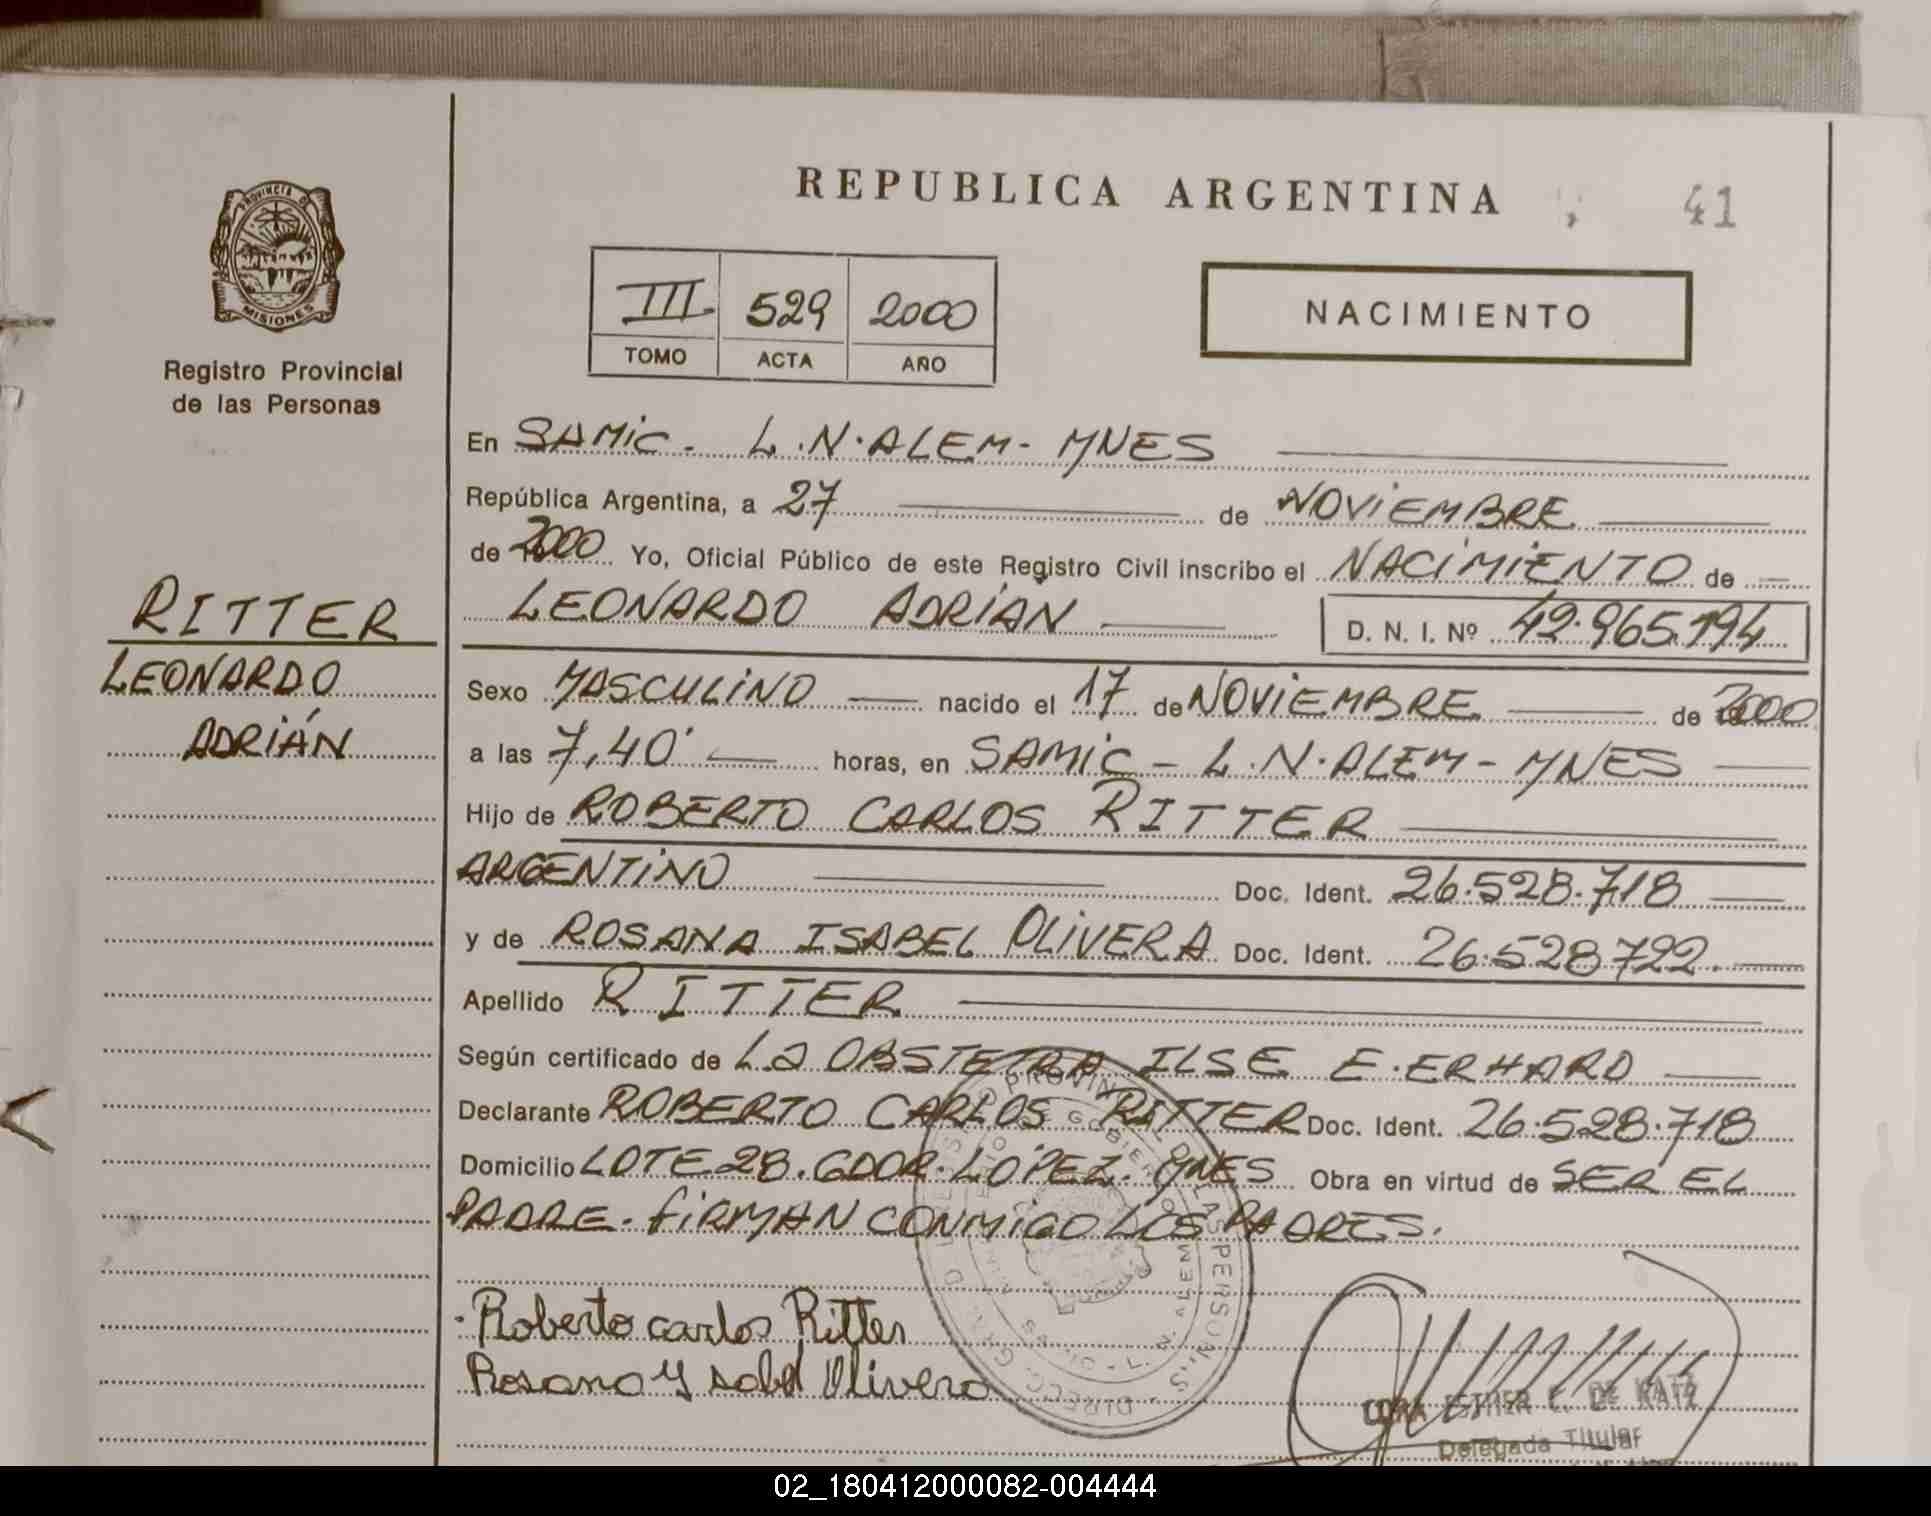 REPUBLICA ARGENTINA
41
PROVINCIA DE
MISIONES
Registro Provincial
de las Personas
III 529 2000
TOMO ACTA AÑO
NACIMIENTO
RITTER
LEONARDO
ADRIÁN
En SAMIC - L.N. ALEM - MNES
República Argentina, a 27 de NOVIEMBRE
de 2000 Yo, Oficial Público de este Registro Civil inscribo el NACIMIENTO de
LEONARDO ADRIAN D. N. I. Nº 42.965.194
Sexo MASCULINO nacido el 17 de NOVIEMBRE de 2000
a las 7,40' horas, en SAMIC - L.N. ALEM - MNES
Hijo de ROBERTO CARLOS RITTER
ARGENTINO Doc. Ident. 26.528.718
y de ROSANA ISABEL OLIVERA Doc. Ident. 26.528722.
Apellido RITTER
Según certificado de La OBSTETRA ILSE E. ERHARD
Declarante ROBERTO CARLOS RITTER Doc. Ident. 26.528.718
Domicilio LOTE 28. GDOR. LOPEZ. MNES Obra en virtud de SER EL
PADRE. FIRMAN CONMIGO LOS PADRES.
Roberto carlos Ritter
Rosana Ysabel Olivera
ESTHER E. DE KATZ
Delegada Titular
02_180412000082-004444